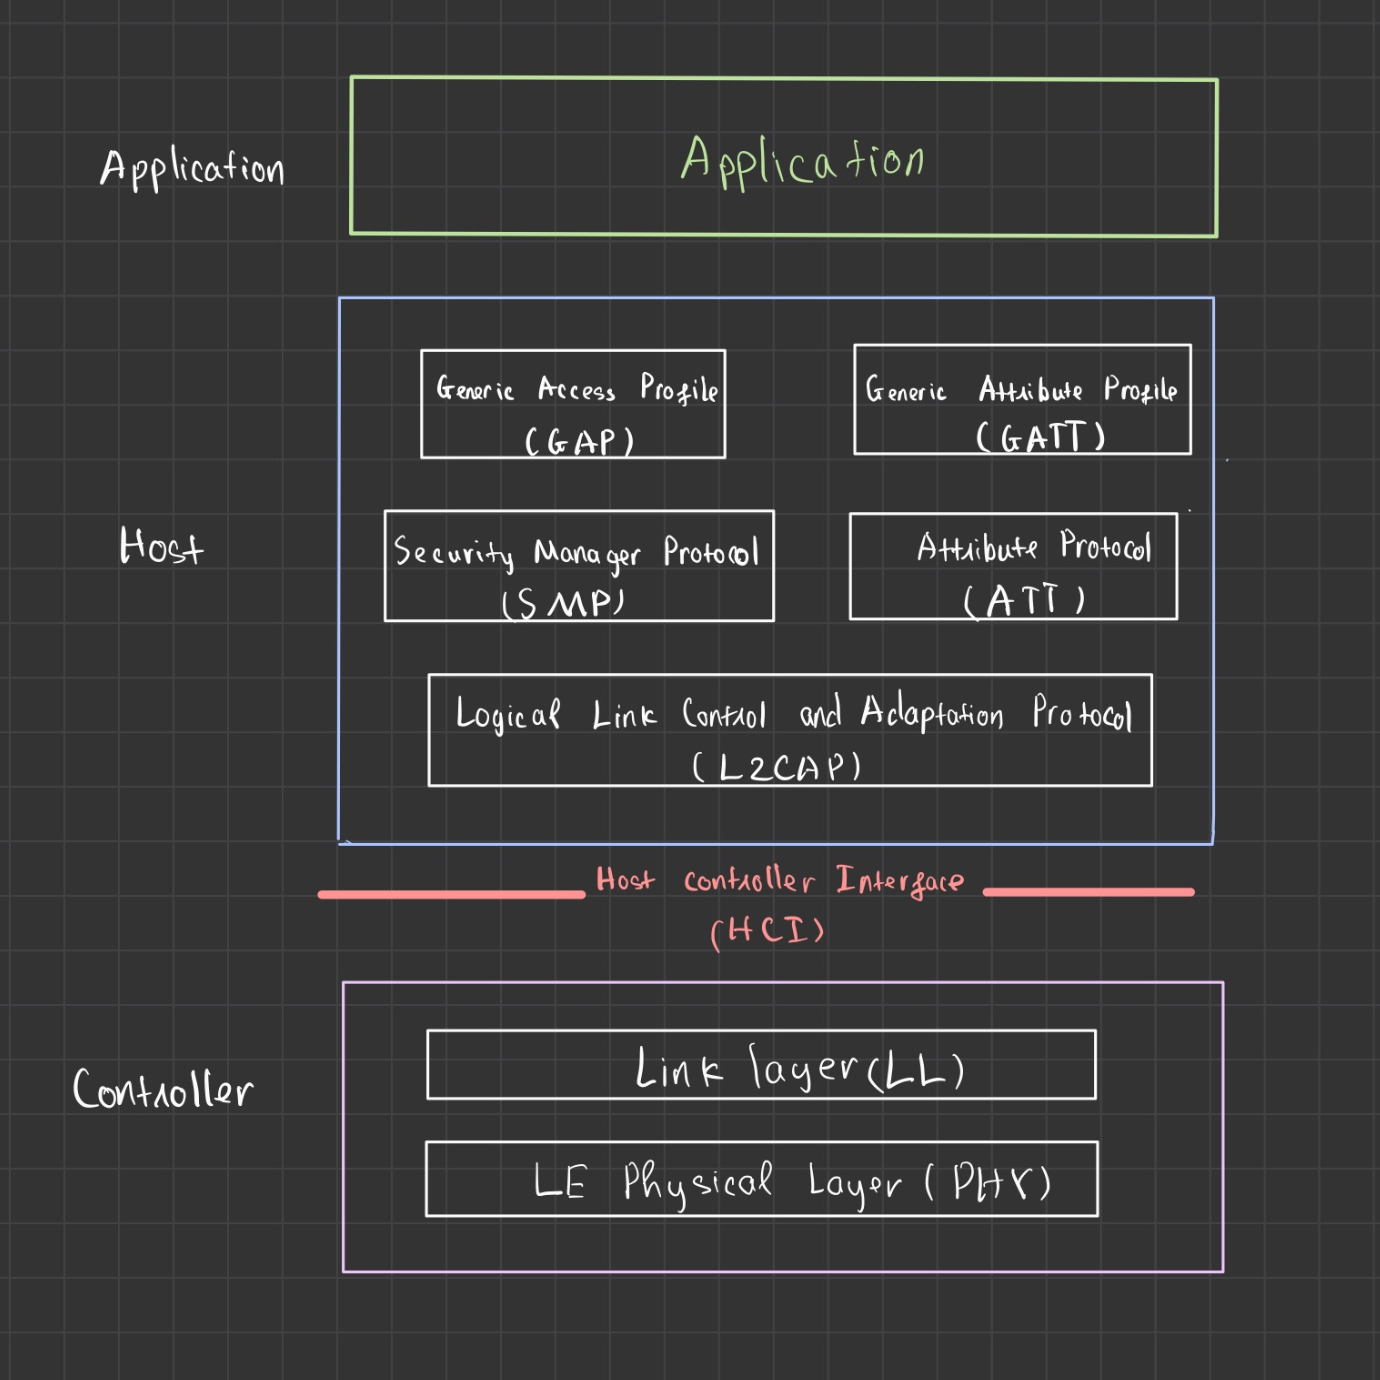 Application
Application
Generic Access Profile
(GAP)
Generic Attribute Profile
(GATT)
Host
Security Manager Protocol
(SMP)
Attribute Protocol
(ATT)
Logical Link Control and Adaptation Protocol
(L2CAP)
Host Controller Interface
(HCI)
Controller
Link layer (LL)
LE Physical Layer (PHY)